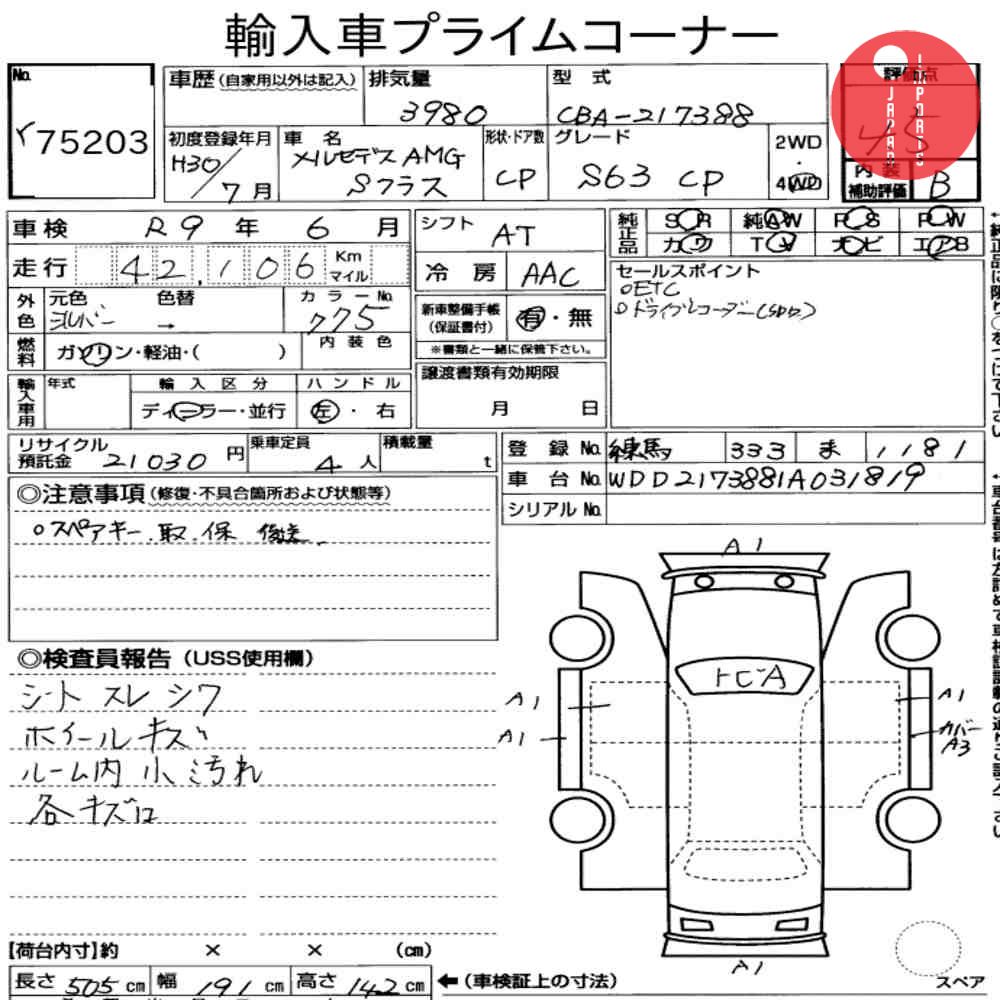 輸入車プライムコーナー
No. r75203
車歴(自家用以外は記入) 排気量 3980 型式 CBA-217388 評価点 4.5
初度登録年月 H30/7月 車名 メルセデスAMG Sクラス 形状・ドア数 CP グレード S63 CP 2WD・4WD 内装補助評価 B
JAPAN IMPORTS
車検 R9年 6月 シフト AT 純正品 SR 純AW PS PW
走行 42,106 Km マイル 冷房 AAC カワ TV ナビ エアB
外色 元色 シルバー 色替 → カラーNo. 775 新車整備手帳(保証書付) 有・無 セールスポイント
○ETC
○ドライブレコーダー(SDカ)
※書類と一緒に保管下さい。
燃料 ガソリン・軽油・( ) 内装色
輸入車用 年式 輸入区分 ハンドル 譲渡書類有効期限
ディーラー・並行 左・右 月 日
リサイクル預託金 21030円 乗車定員 4人 積載量 t 登録No. 練馬 333 ま 1181
車台No. WDD2173881A031819
シリアルNo.
◎注意事項(修復・不具合箇所および状態等)
○スペアキー.取.保 後送.
◎検査員報告(USS使用欄)
シート スレ シワ
ホイールキズ
ルーム内 小汚れ
各キズロ
A1
トビA
A1 A1
A1 カバーA3
A1
スペア
【荷台内寸】約 × × (cm)
長さ 505cm 幅 191cm 高さ 142cm ←(車検証上の寸法)